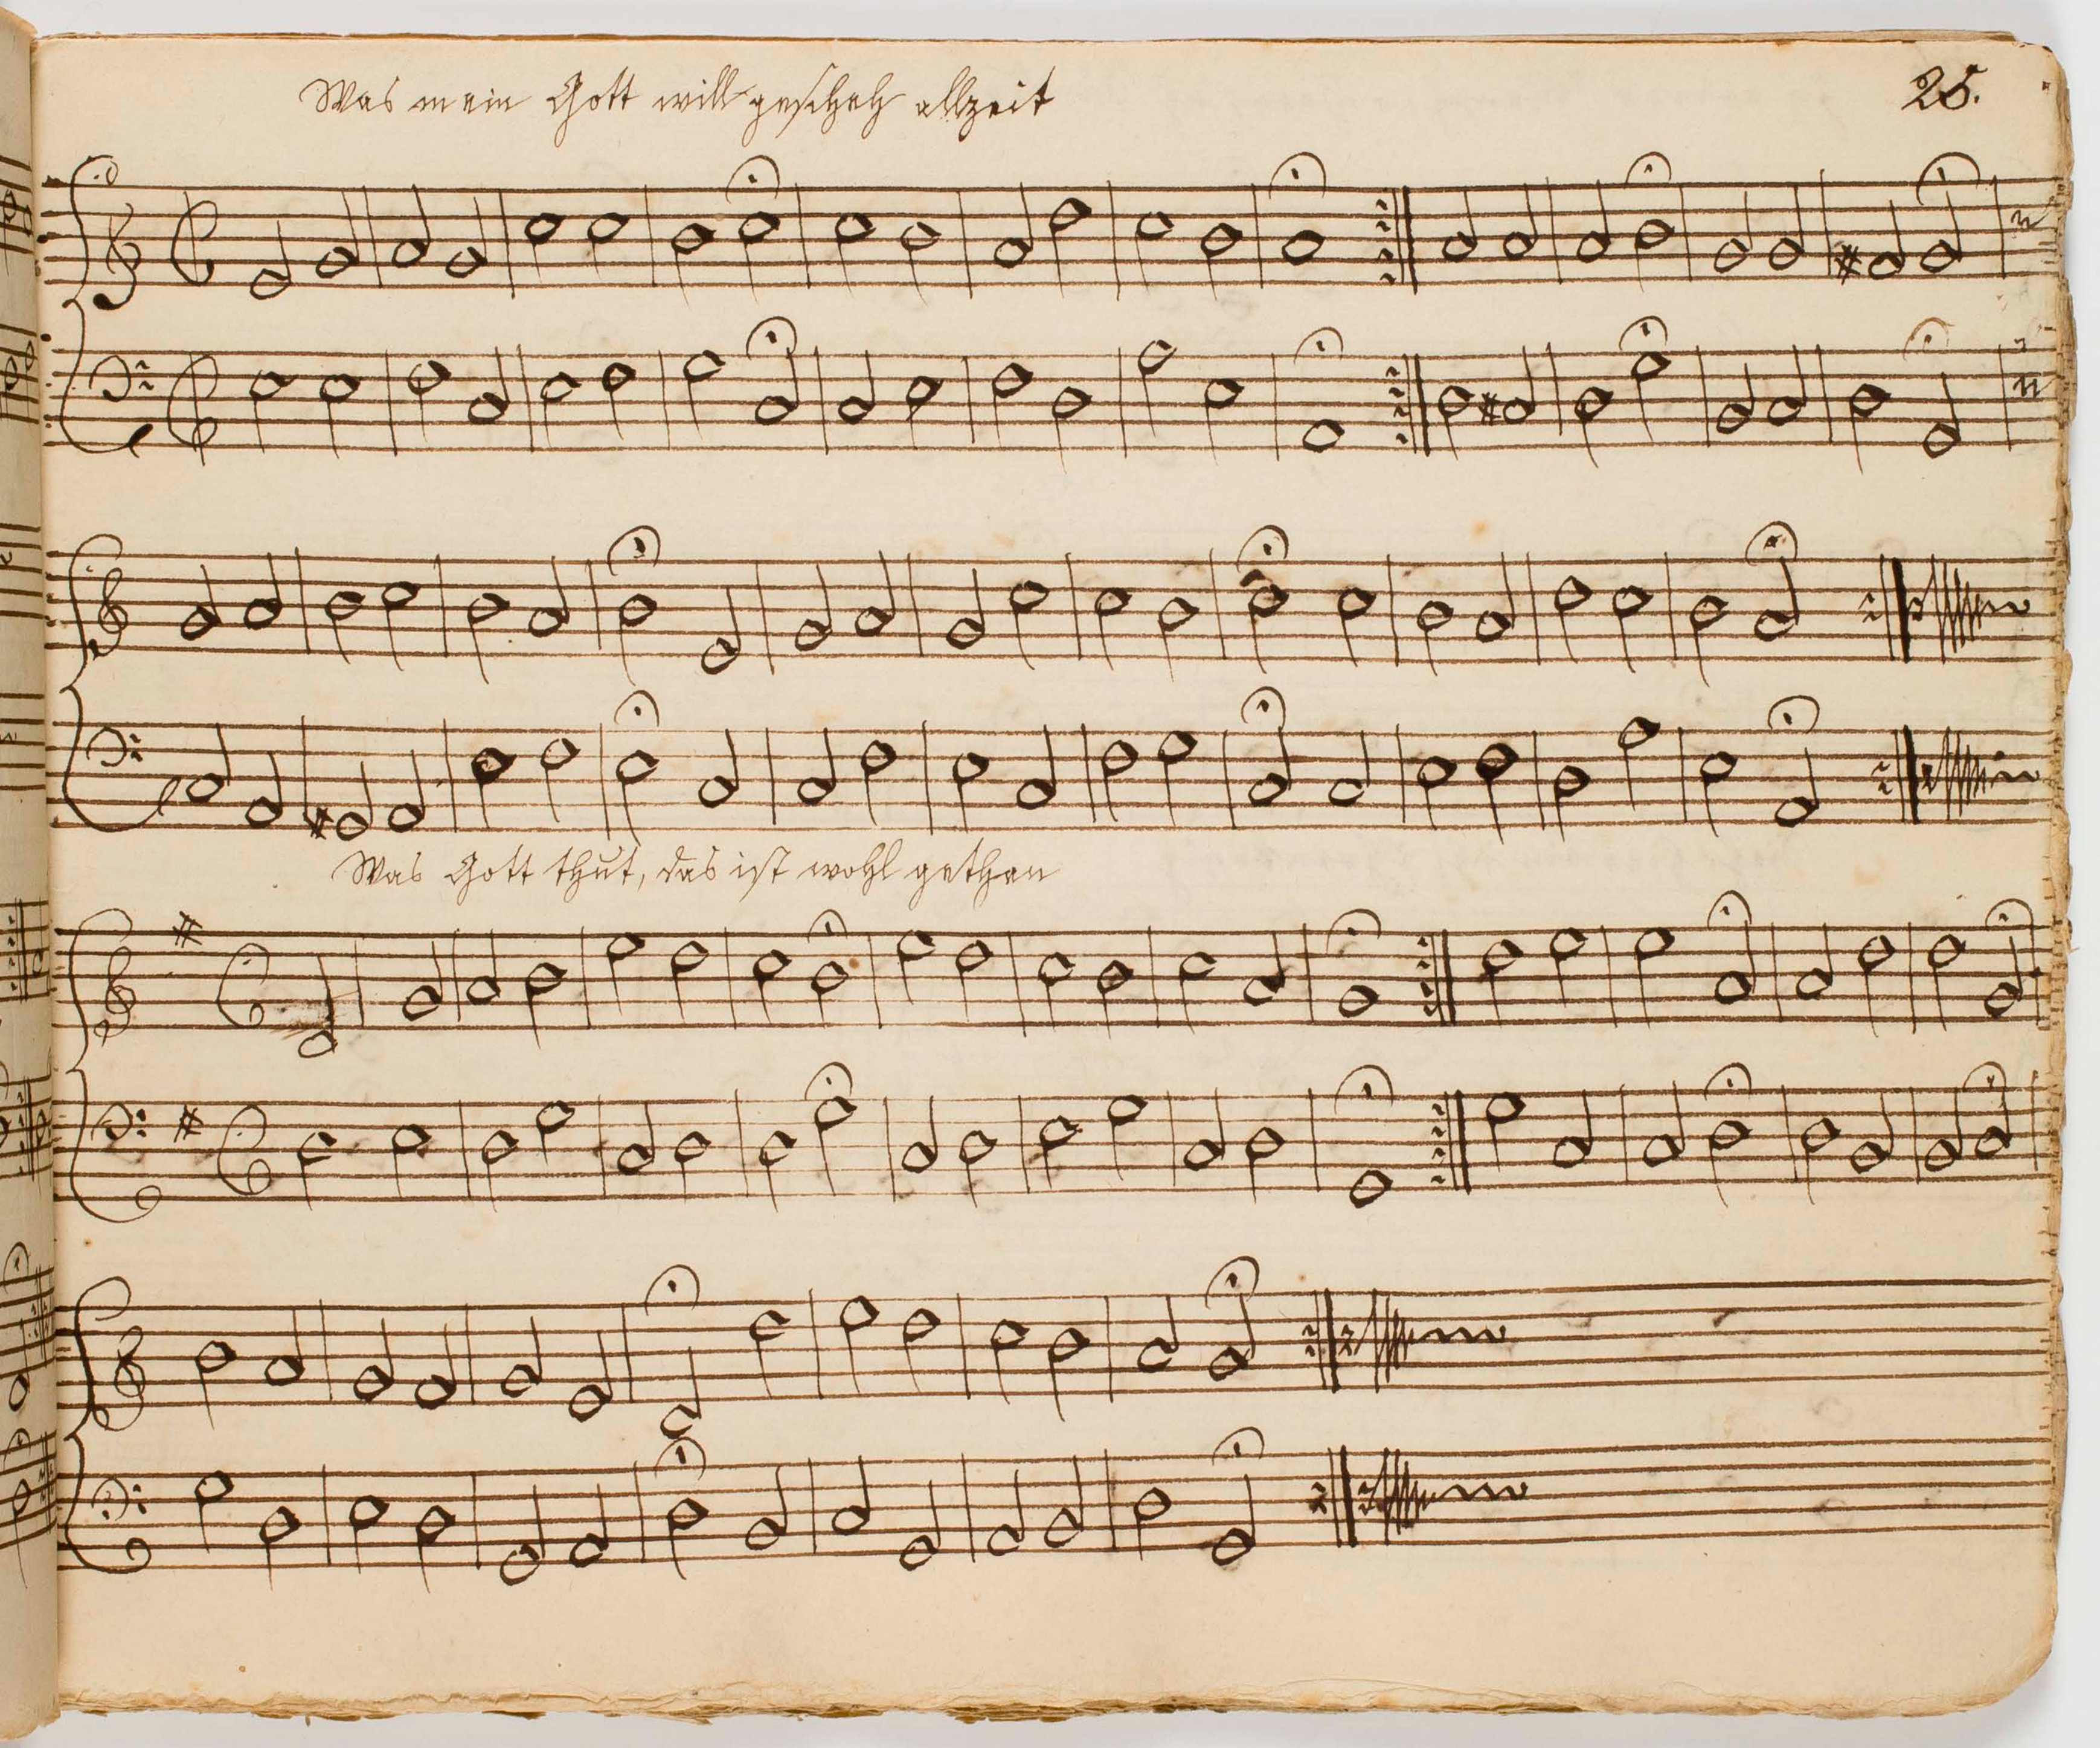 Was mein Gott will gescheh allzeit
25.
Was Gott thut, das ist wohl gethan